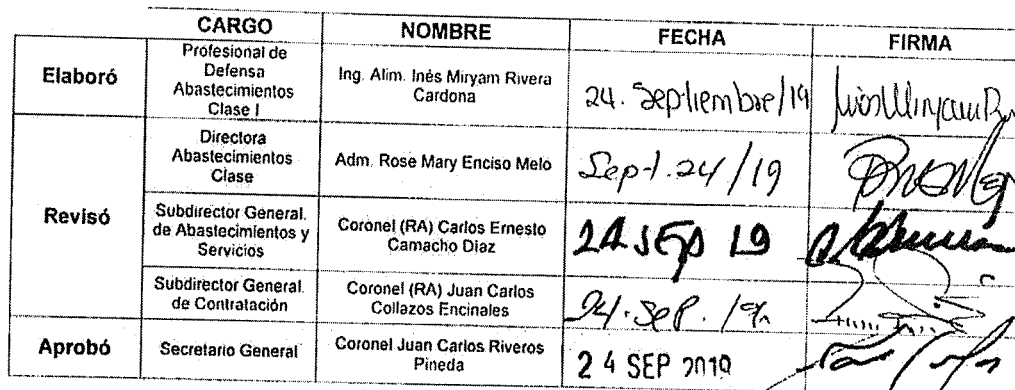 CARGO NOMBRE FECHA FIRMA
Elaboró
Profesional de
Defensa
Abastecimientos
Clase I
Ing. Alim. Inés Miryam Rivera
Cardona
24. Septiembre/19
Revisó
Directora
Abastecimientos
Clase
Adm. Rose Mary Enciso Melo
Sept. 24/19
Subdirector General.
de Abastecimientos y
Servicios
Coronel (RA) Carlos Ernesto
Camacho Diaz
24 SEP 19
Subdirector General.
de Contratación
Coronel (RA) Juan Carlos
Collazos Encinales
24. Sep. /19
Aprobó
Secretario General
Coronel Juan Carlos Riveros
Pineda
2 4 SEP 2019